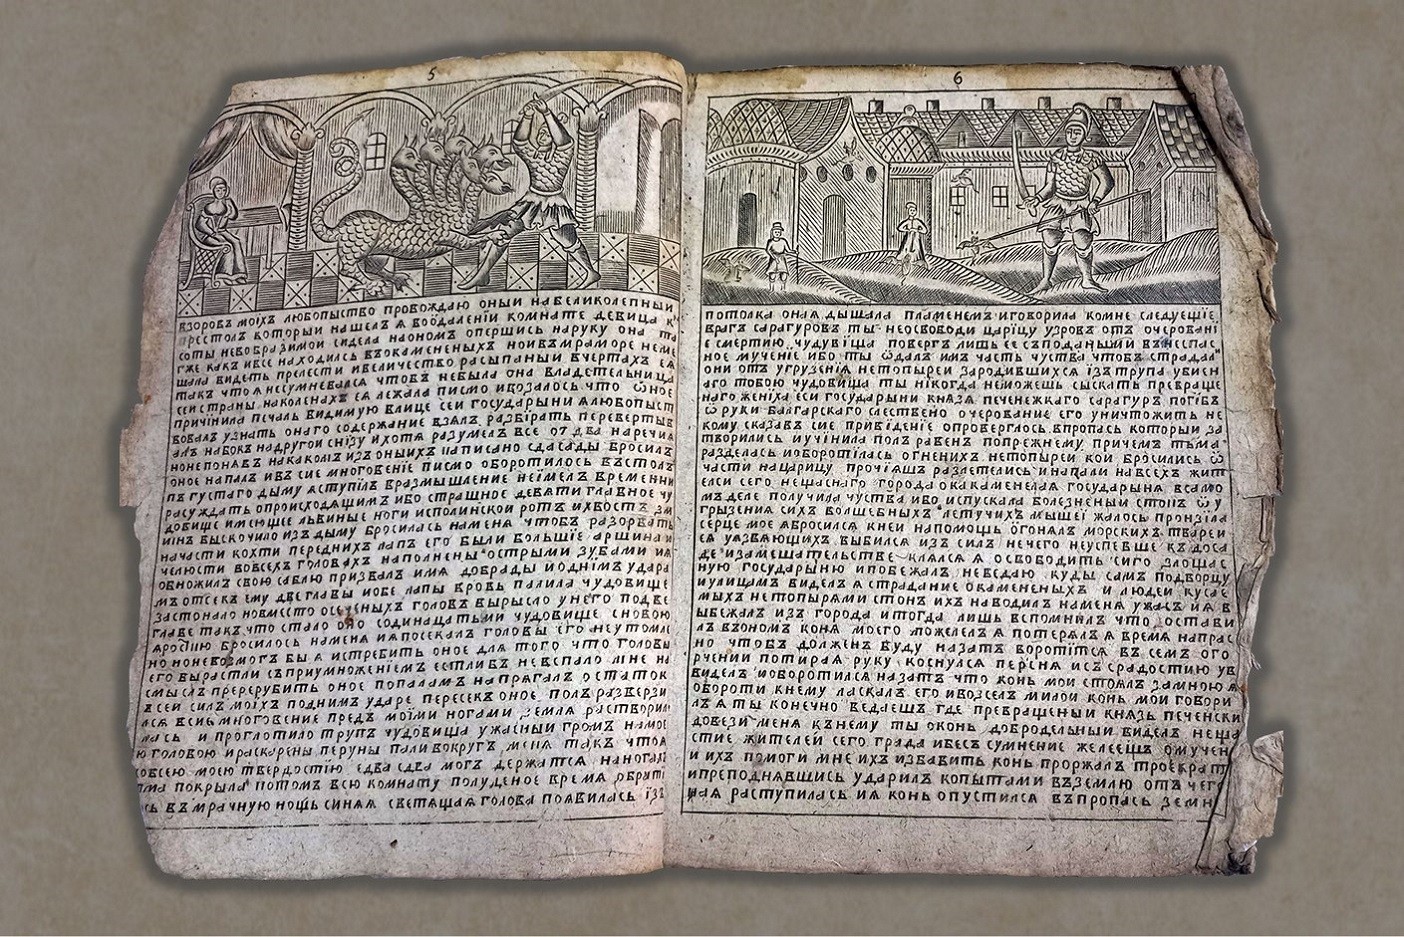 5
взоровъ моіхъ любопыство провождаю оныи навеликолепныи
престолъ которыи нашелъ я воѻдаленіи комнате девица
соты невобразимои сидела наономъ опершись наруку она
гже какъ ивсе находилсь въокамененыхъ ноивъмраморе неме
шала видеть прелести ивеличество расыпаныи вчертахъ ея
такъ чтоя несумневался чтобъ небыла она владетельница
сеи страны наколенахъ ея лежала писмо ивозалось что ѿное
причинила печаль видимую влице сеи государыни ялюбопыст
вовалъ узнать онаго содержание взялъ разбірать перевертыв
алъ набокъ надругои снізу ихотя разумелъ все от два наречия
нонепонявъ накаколъ изъоныихъ написано сдасады бросилъ
оное напалъ ивъ сие многовение писмо оборотилось въстолъ
пъ густаго дыму яступілъ вразмышление неімелъ временни
расуждать опроисходящимъ ибо страшное девяти главное чу
довище имеющее львиные ноги исполинскои ротъ ихвостъ зм
иінъ выскочило изъдыму бросилась наменя чтобъ разорвать
начасти кохти переднихъ лапъ его были большіе аршина и
челюсти вовсехъ головахъ наполнены острыми зубами ия
обножилъ свою саблю призвалъ имя добрады иоднімъ удара
мъ отсекъ ему две главы иобе лапы кровь палила чудовище
застонало новместо осеченыхъ головъ вырысло унего подве
главе такъ что стало оно содинацатьми чудовище сновою
яростію бросилось наменя ияпосекалъ головы его неутомле
но ноневозмогъ бы я истребить оное для того что головы
его вырастли съприумножениемъ естлибъ невспало мне на
смыслъ пререрубить оное пополамъ напрягалъ остаток
ъсеи силъ моіхъ поднимъ ударе пересекъ оное полъ разверзи
лся всиѣмноговение предъ моіми ногами земля растворил
лась и проглотило трупъ чудовища ужасныи громъ намое
ю головою ираскарены перуны пали вокругъ меня такъ чтоя
совсею моею твердостію едва едва могъ держатся наногахъ
тма покрыла потомъ всю комнату полуденое время обраті
сь въмрачную нощъ синяя светящая голова появилась ізъ
6
потолка оная дышала пламенемъ иговорила комне следуещие
врагъ сарагуровъ ты неосвободи царіцу узровъ отъ очеровані
е смертию чудувіща повергъ лишь ее съподаными въ неспас
ное мучение ибо ты ѿдалъ имъ часть чуства чтобъ страдал
они отъ угрузенія нетопыреи зародившихся ізъ трупа убиен
аго тобою чудовища ты нікогда неможешь сыскать превраще
наго женіха еси государыни князя печенежкаго сарагуръ погібъ
ѿ руки балгарскаго слествено очерование его уничтожить не
кому сказавъ сие привідение опроверглось впропась которыи за
творились иучинила полъ равенъ попрежнему причемъ тьма
разделась иоборотілась огненихъ нетопыреи кои бросились ѿ
части нацарицу прочіяшъ разлетелись инапали навсехъ жит
елеи сего нещаснаго города окаменелая государыня всамо
мъделе получила чуства ибо испускала болезненыи стонъ ѿ у
грызения сихъ волшебныхъ летучихъ мышеі жалось пронзіла
серце мое ябросился кнеи напомощь ѻгонялъ морскихъ твареи
ея уязвяющихъ выбился изъ силъ нечего неуспевше къдоса
де изамешательстве клялся я освободить сиго злощас
ную государыню ипобежалъ неведаю куды самъ подворцу
иулицамъ виделъ я страдание окамененыхъ и людеи кусае
мыхъ нетопырями стонъ ихъ наводилъ наменя ужасъ ия в
ыбежалъ изъ города итогда лишь вспомнилъ что остави
лъ въономъ коня моего пожелелъ я потерялъ я время напрас
но чтобъ долженъ буду назатъ воротітся въ семъ ого
рчении потирая руку коснулся персня исъ срадостию ув
виделъ иоборотился назатъ что конь мои стоялъ замною я
обороти кнему ласкалъ его ивозселъ милои конь мои говори
лъ я ты конечно ведаешъ где превращеныи князь печенски
довези меня къ нему ты оконь добродельныи виделъ неща
стие жителеи сего града ибесъ сумнение желеешъ омучен
и ихъ помоги мне ихъ избавить конь проржалъ троекрат
ипреподнявшись ударилъ копытами въземлю отъ чего
ная раступилась ия конь опустился въпропась земн